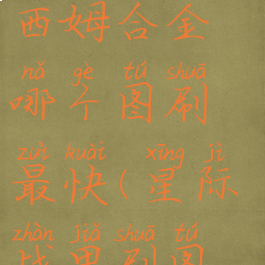 西姆合金
nǎ gè tú shuā
哪个图刷
zuì kuài xīng jì
最快(星际
zhàn jiǎ shuā tú
战甲刷图